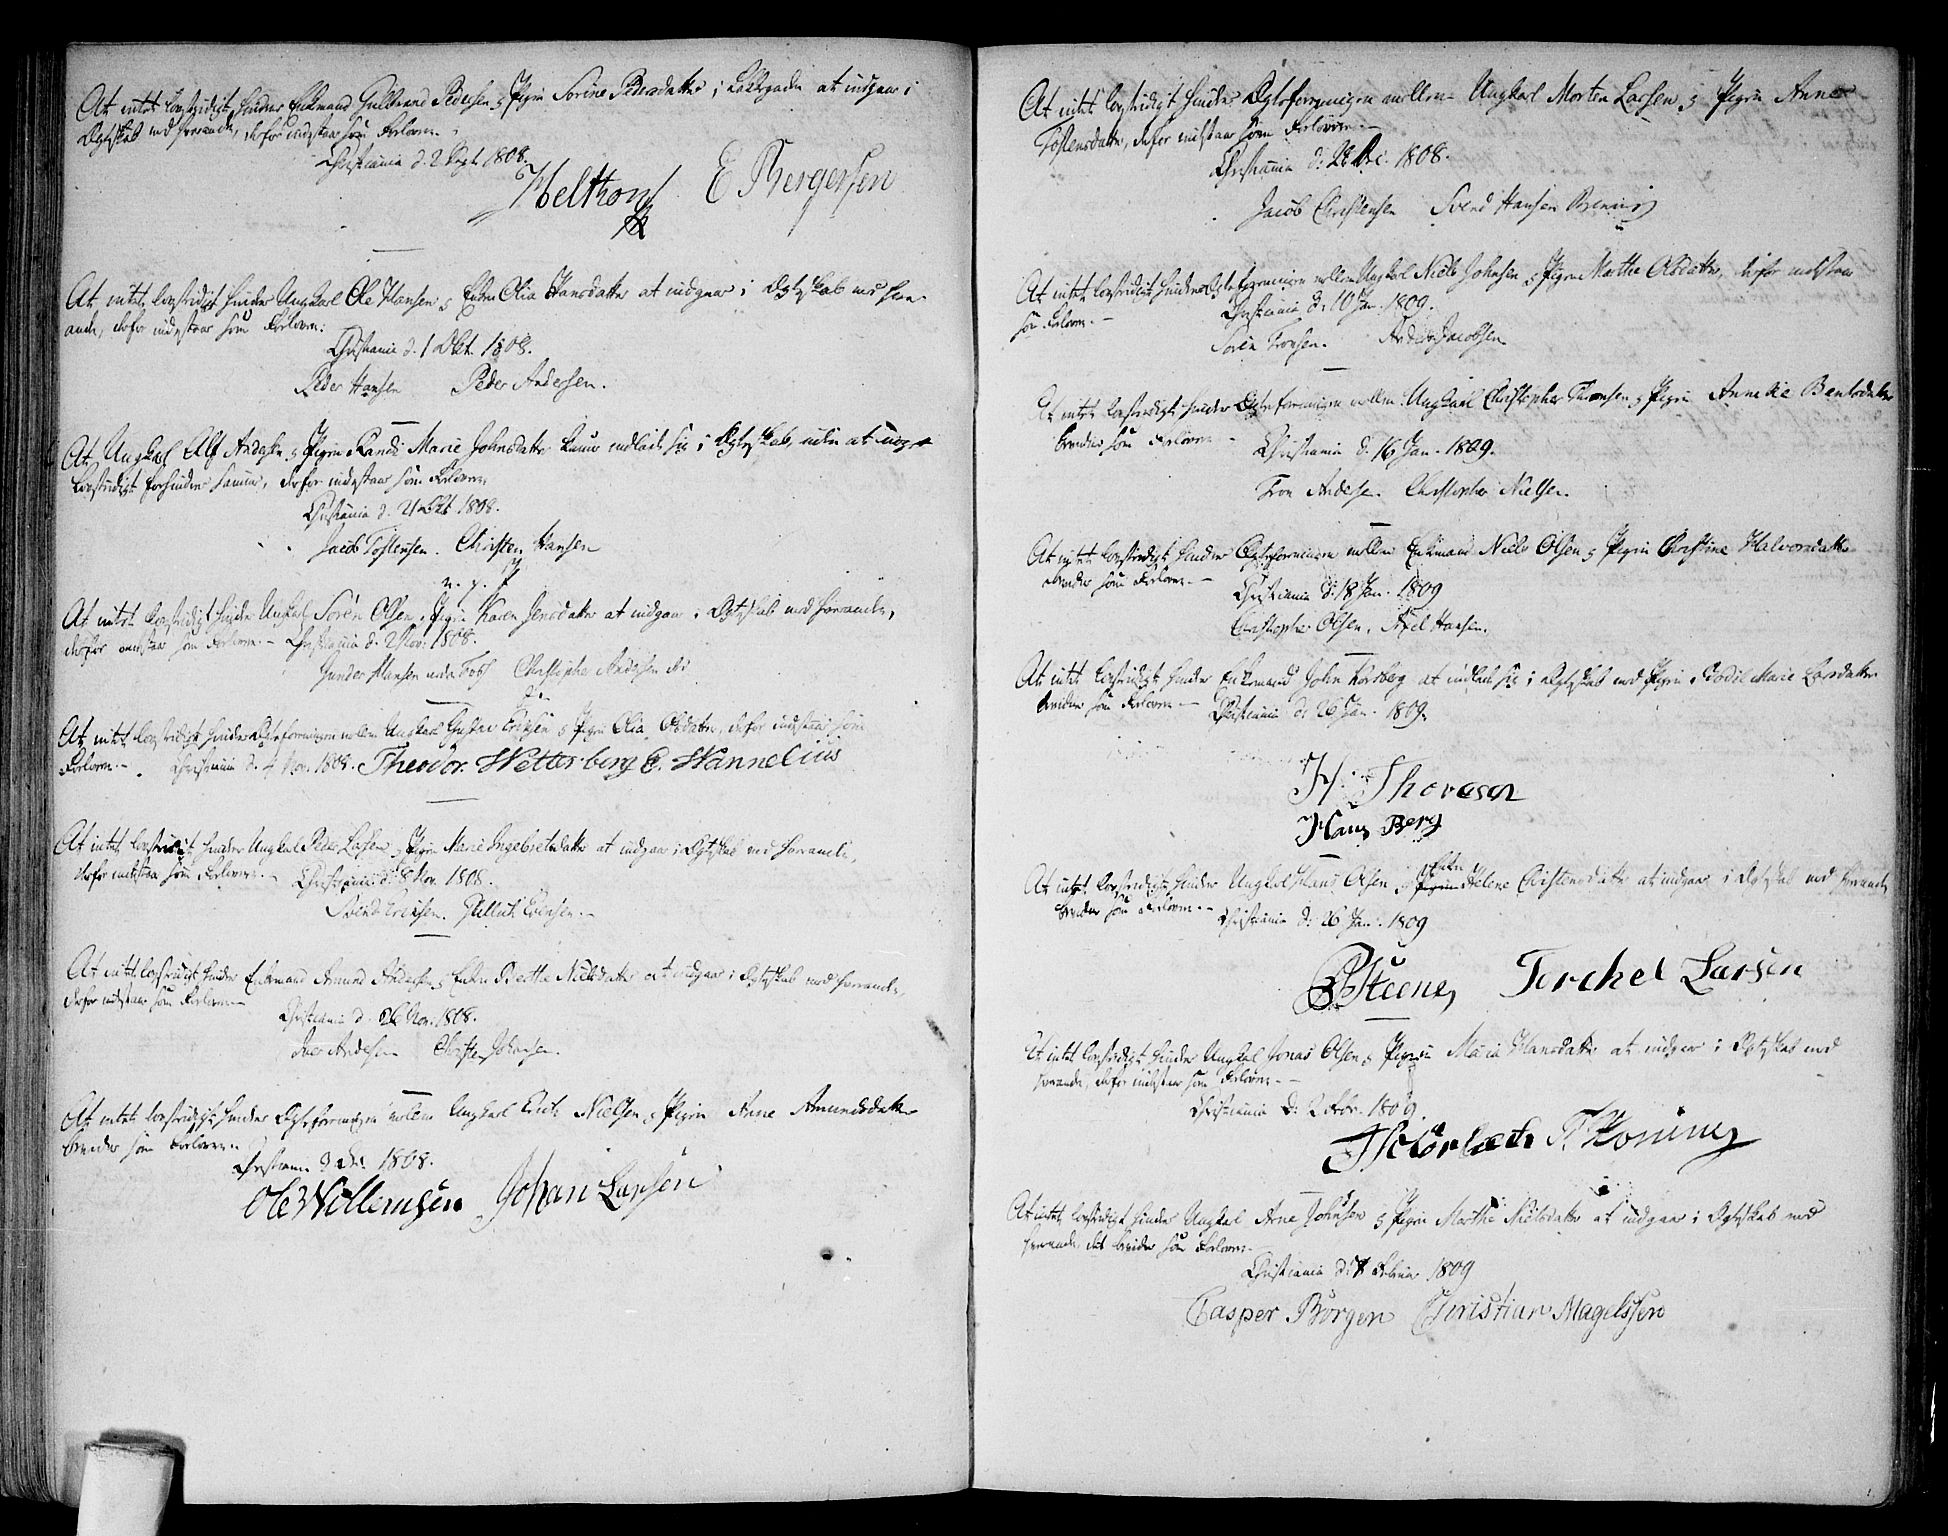 At intet lovstridigt hindrer Enkemand Gulbrand Pedersen og Pigen Sorine Pedersdatter i at indgaae i
Egteskab med hverandre, derfor indestaar som Forlovere.
Christiania d. 2 Sept. 1808.
Heltzen E Bergersen
At intet lovstridigt hindrer Ungkarl Ole Hansen og Enken Olia Hansdatter at indgaae i Egteskab med hver-
andre, derfor indestaar som Forlovere.
Christiania d. 1 Okt. 1808.
Peder Hansen Peder Andersen.
At Ungkarl Elf Andersen og Pigen Randi Marie Johnsdatter kunne indlade sig i Egteskab, uden at noget
lovstridigt forhindrer samme, derfor indestaar som Forlovere
Christiania d. 21 Okt 1808.
Jacob Tostensen. Christen Hansen
At intet lovstridigt hindrer Ungkarl Sorén Olsen og Pigen Karen Jensdatter at indgaae i Egteskab med hverandre,
derfor indestaar som Forlovere. – Christiania d. 2 Nov. 1808.
Gunder Hansen Christopher Andersen
At intet lovstridigt hindrer Egteforeningen mellem Ungkarl Gustav Erichsen og Pigen Olia Olsdatter, derfor indestaar som
Forlovere. – Christiania d. 4 Nov. 1808. Theodor. Wetterberg C. Wannelius
At intet lovstridigt hindrer Ungkarl Peder Larsen og Pigen Marie Ingebretsdatter at indgaae i Egteskab med hverandre,
derfor indestaar som Forlovere. – Christiania d. 8 Nov. 1808.
Svend Evensen.
At intet lovstridigt hindrer Enkemand Amund Andersen og Enken Birthe Nielsdatter at indgaae i Egteskab med hverandre,
derfor indestaar som Forlovere –
Christiania d. 26 Nov. 1808.
Iver Andersen Christen Johansen.
At intet lovstridigt hindrer Egteforeningen mellem Ungkarl Erich Nielsen og Pigen Anne Amundsdatter
bevidner som Forlovere.
Christiania 9 Dec 1808.
Ole Willemsen Johan Larsen
At intet lovstridigt hindrer Egteforeningen mellem Ungkarl Morten Larsen og Pigen Anne
Tostensdatter, derfor indestaar som Forlovere. –
Christiania d. 28 Dec. 1808.
Jacob Christensen Svend Hansen
At intet lovstridigt hindrer Egteforeningen mellem Ungkarl Niels Johnsen og Pigen Marthe Olsdatter, derfor indestaar
som Forlovere. – Christiania d. 10 Jan. 1809.
Sorén Tronsen. Anders Jacobsen
At intet lovstridigt hindrer Egteforeningen mellem Ungkarl Christopher Thronsen og Pigen Annechie Bentsdatter
bevidner som Forlovere –
Christiania d. 16 Jan. 1809.
Tron Andersen. Christopher Nielsen.
At intet lovstridigt hindrer Egteforeningen mellem Enkemand Niels Olsen og Pigen Christine Halvorsdatter
bevidner som Forlovere. –
Christiania d. 18 Jan. 1809
Christopher Olsen. Axel Hansen.
At intet lovstridigt hindrer Enkemand John Korsberg at indlade sig i Egteskab med Pigen Bodil Marie Larsdatter
bevidner som Forlovere – Christiania d. 26 Jan. 1809.
H. Thoresen
Hans Berg
At intet lovstridigt hindrer Ungkarl Hans Olsen og Enken Helene Christensdatter at indgaae i Egteskab med hverandre
bevidner som Forlovere. – Christiania d. 26 Jan. 1809
Steene, Torchel Larsen
At intet lovstridigt hindrer Ungkarl Jonas Olsen og Pigen Maria Hansdatter at indgaae i Egteskab med
hverandre, derfor indestaar som Forlovere. –
Christiania D. 2 Febr. 1809.
At intet lovstridigt hindrer Ungkarl Arne Johnsen og Pigen Marthe Nielsdatter at indgaae i Egteskab med
hverandre, det bevidner som Forlovere.
Christiania d. 7 Februar 1809
Casper Borgen Christian Magelssen